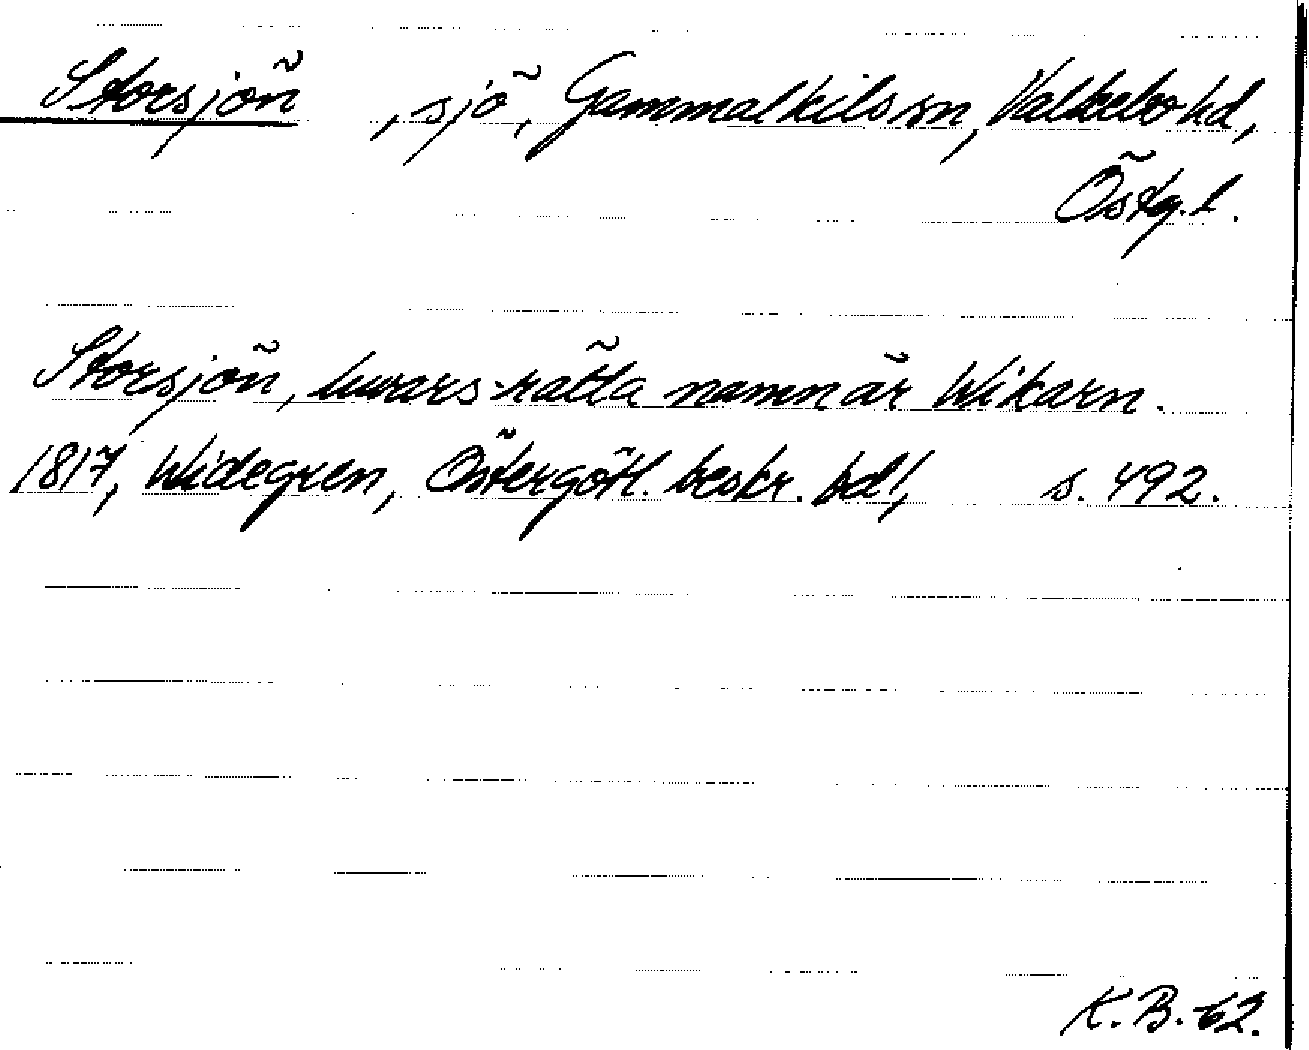 Storsjön, sjö, Gammalkils sn, Valkebo hd,
Östg.l.
Storsjön, hvars rätta namn är Wikarn.
1817, Widegren, Östergötl. beskr. bd 1, s. 492.
K.B. 62.